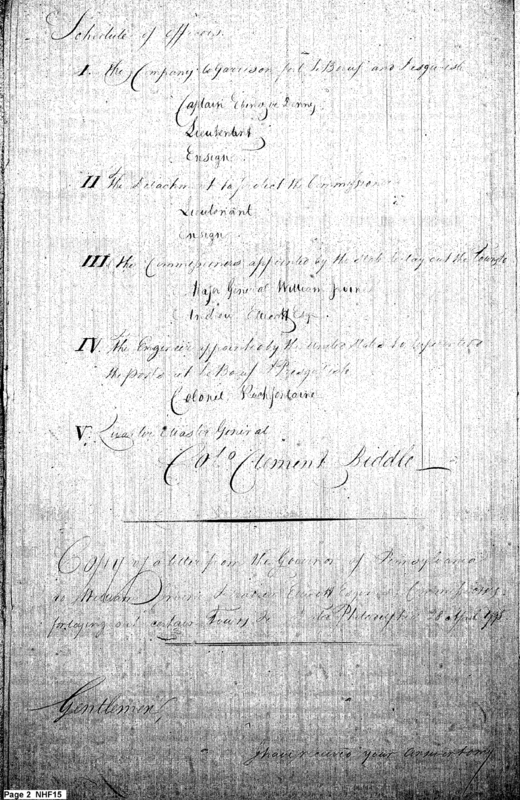 Schedule of officers.
I. the Company to Garrison fort Le Boeuf and Presquisle
Captain Ebenezer Denny
Lieutenant
Ensign
II The Detachment to protect the Commissioners
Lieutenant
Ensign
III the Commissioners appointed by the State to lay out the Towns
Major General William Irvine
Andrew Ellicott Esqr
IV. The Engineer appointed by the United States to
the posts at Le Boeuf & Presqu'isle
Colonel Rochfontaine
V. Quarter Master General
Colo Clement Biddle
Copy of a letter from the Governor of Pennsylvania
to William Irvine & Andrew Ellicott Esquires Commissioners
for laying out certain Towns &c Philadelphia 28 April 1795
Gentlemen,
I have received your answer to my
Page 2 NHF15